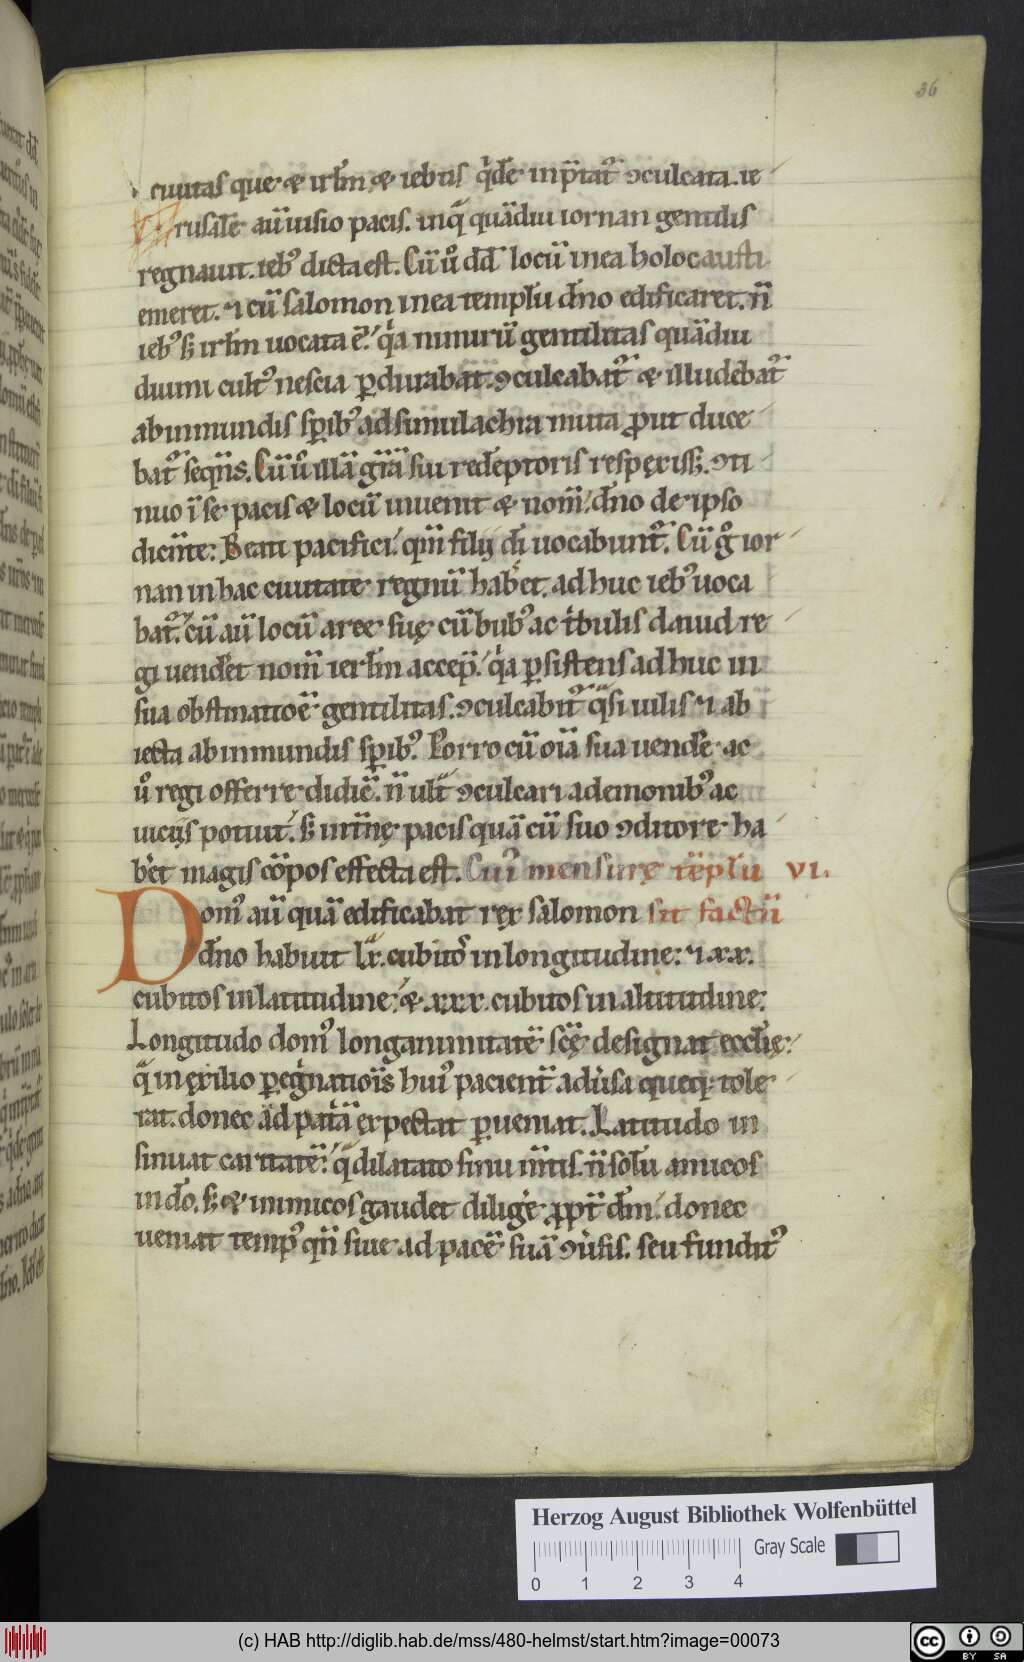 36
ciuitas que & irl̅m, & iebus q̇de̅ inp̅tat᷑ ɔculcata. ie
rusale̅ au̅ uisio pacis. inq̇ qua̅diu iornan gentilis
regnauit. iebꝰ dicta est. Cu̅ ů dd̅ locu̅ in ea holocausti
emeret. ⁊ cu̅ salomon in ea templu̅ dn̅o edificaret. n̅
iebꝰ s; irl̅m uocata e̅. q̇a nimiru̅ gentilitas qua̅diu
diuini cultꝰ nescia ꝑdurabat. ɔculcabat᷑ & illudebat᷑
ab inmundis sp̅ibꝰ ad simulachra muta ꝓut duce
bat᷑ seq̅ns. Cu̅ ů illa̅ gr̅a̅ sui rede̅ptoris respęxiss;. ɔti
nuo i̅ se pacis & locu̅ inuenit & nom̅. dn̅o de ipso
dicn̅te: Beati pacifici. qm̅ filij di̅ uocabunt᷑. Cu̅ g̊ ior
nan in hac ciuitate regnu̅ hab̅et. ad huc iebꝰ uoca
bat᷑. cu̅ au̅ locu̅ areę suę cu̅ bubꝰ ac ṫbulis dauid re
gi uend̅et nom̅ ierl̅m accep̅. q̇a ꝑsistens ad huc in
sua obstinatio̅e̅ gentilitas. ɔculcabit᷑ q̅si uilis ⁊ ab
iecta ab inmundis sp̅ibꝰ. Porro cu̅ oi̅a sua uende̅ ac
ů regi offerre didic̅. n̅ ult̅ ɔculcari a demonibꝰ ac
uicijs potuit. s; int̅nę pacis qua̅ cu̅ suo ɔditore ha
b̅et magis co̅pos effecta est. Cuiꝰ mensurę te̅plu̅ VI.
Domꝰ au̅ qua̅ edificabat rex salomon sit factu̅
dn̅o habuit lx̅. cubitoꝰ in longitudine: ⁊ .xx.
cubitos in latitudine: & .xxx. cubitos in altitudine:
Longitudo domꝰ longanimitate̅ sc̅ę designat eccl̅ię.
q̅ in exilio ꝑeg̅natio̅is huiꝰ pacient̅ adu̅sa queq; tole
rat. donec ad pat̅a̅ expectat ꝑueniat. Latitudo in
sinuat caritate̅. q̅ dilatato sinu m̅tis. n̅ solu̅ amicos
in do̅. s; & inimicos gaudet dilig̅e ꝓpt̅ dm̅. donec
ueniat tempꝰ qn̅ siue ad pace̅ sua̅ ɔu̅sis. seu funditꝰ
Herzog August Bibliothek Wolfenbüttel
Gray Scale
0 1 2 3 4
(c) HAB http://diglib.hab.de/mss/480-helmst/start.htm?image=00073
cc BY SA